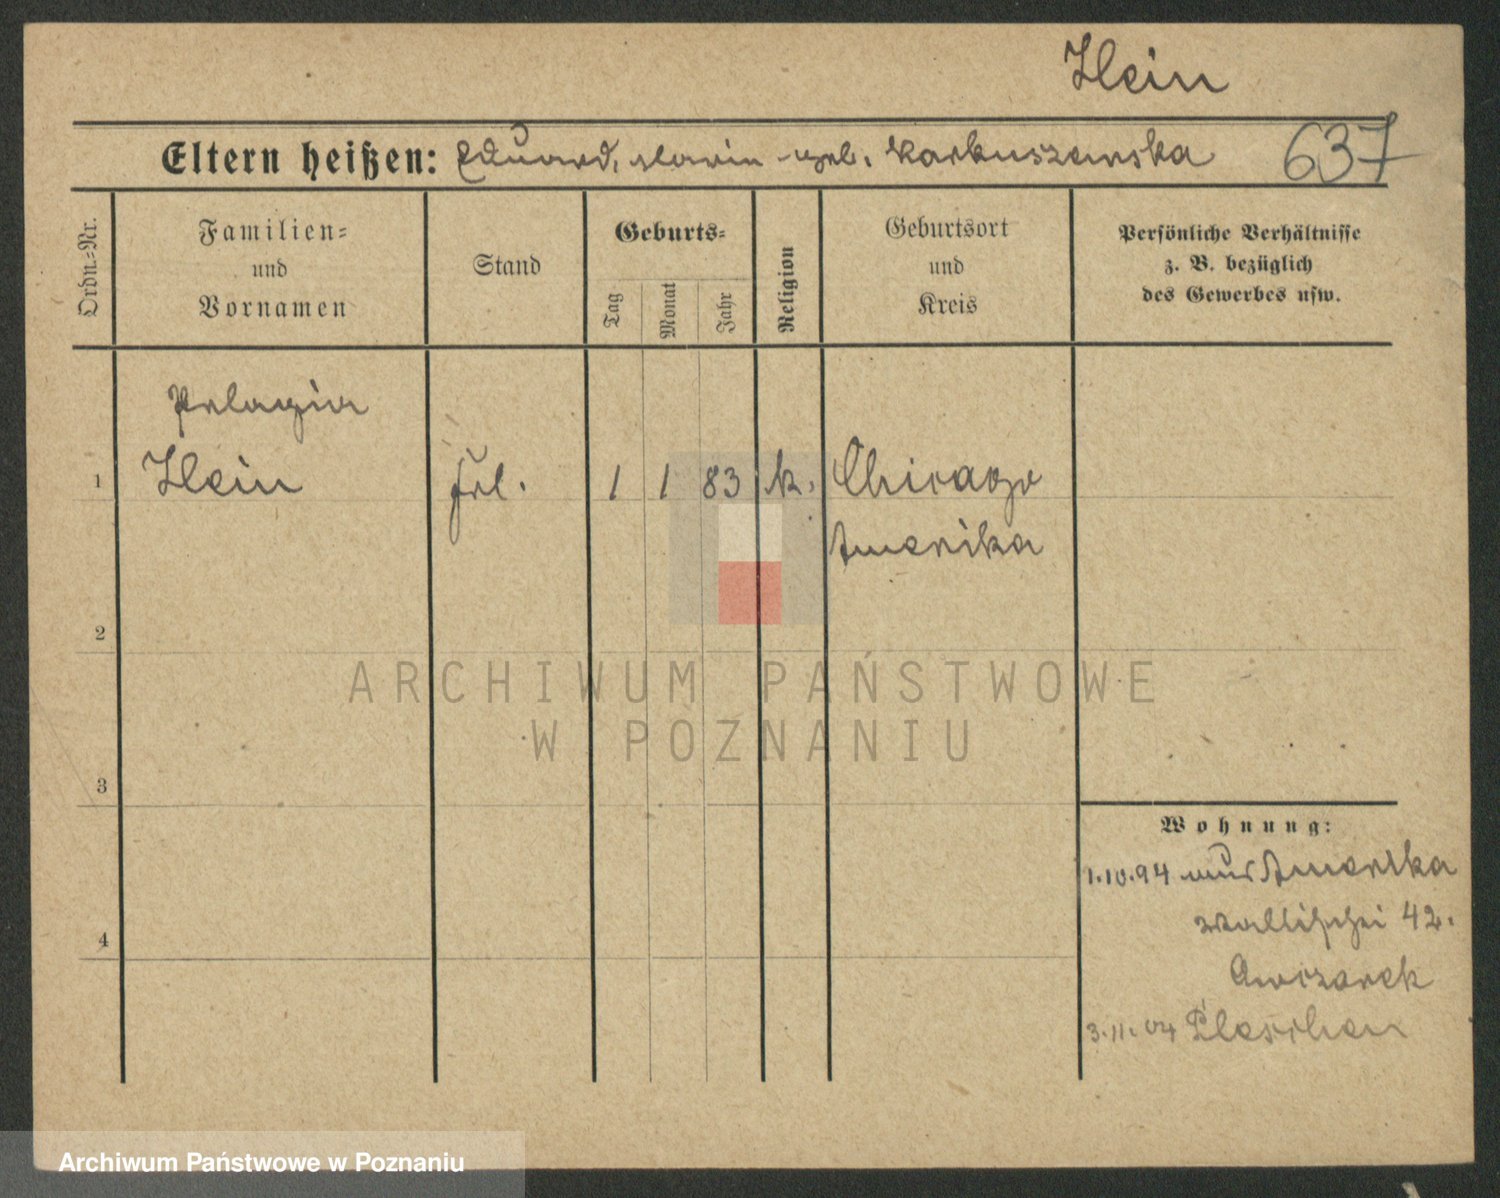 Hein
Eltern heißen: Eduard, Marie geb. Karkuszewska 637
Ordn.-Nr.
Familien-
und
Vornamen
Stand
Geburts-
Tag
Monat
Jahr
Religion
Geburtsort
und
Kreis
Persönliche Verhältnisse
z. B. bezüglich
des Gewerbes usw.
Pelagia
1 Hein Frl. 1 1 83 k. Chicago
Amerika
2
ARCHIWUM PAŃSTWOWE
W POZNANIU
3
Wohnung:
1.10.94 aus Amerika
Wallischei 42.
4
Owczarek
3.11.04 Pleschen
Archiwum Państwowe w Poznaniu